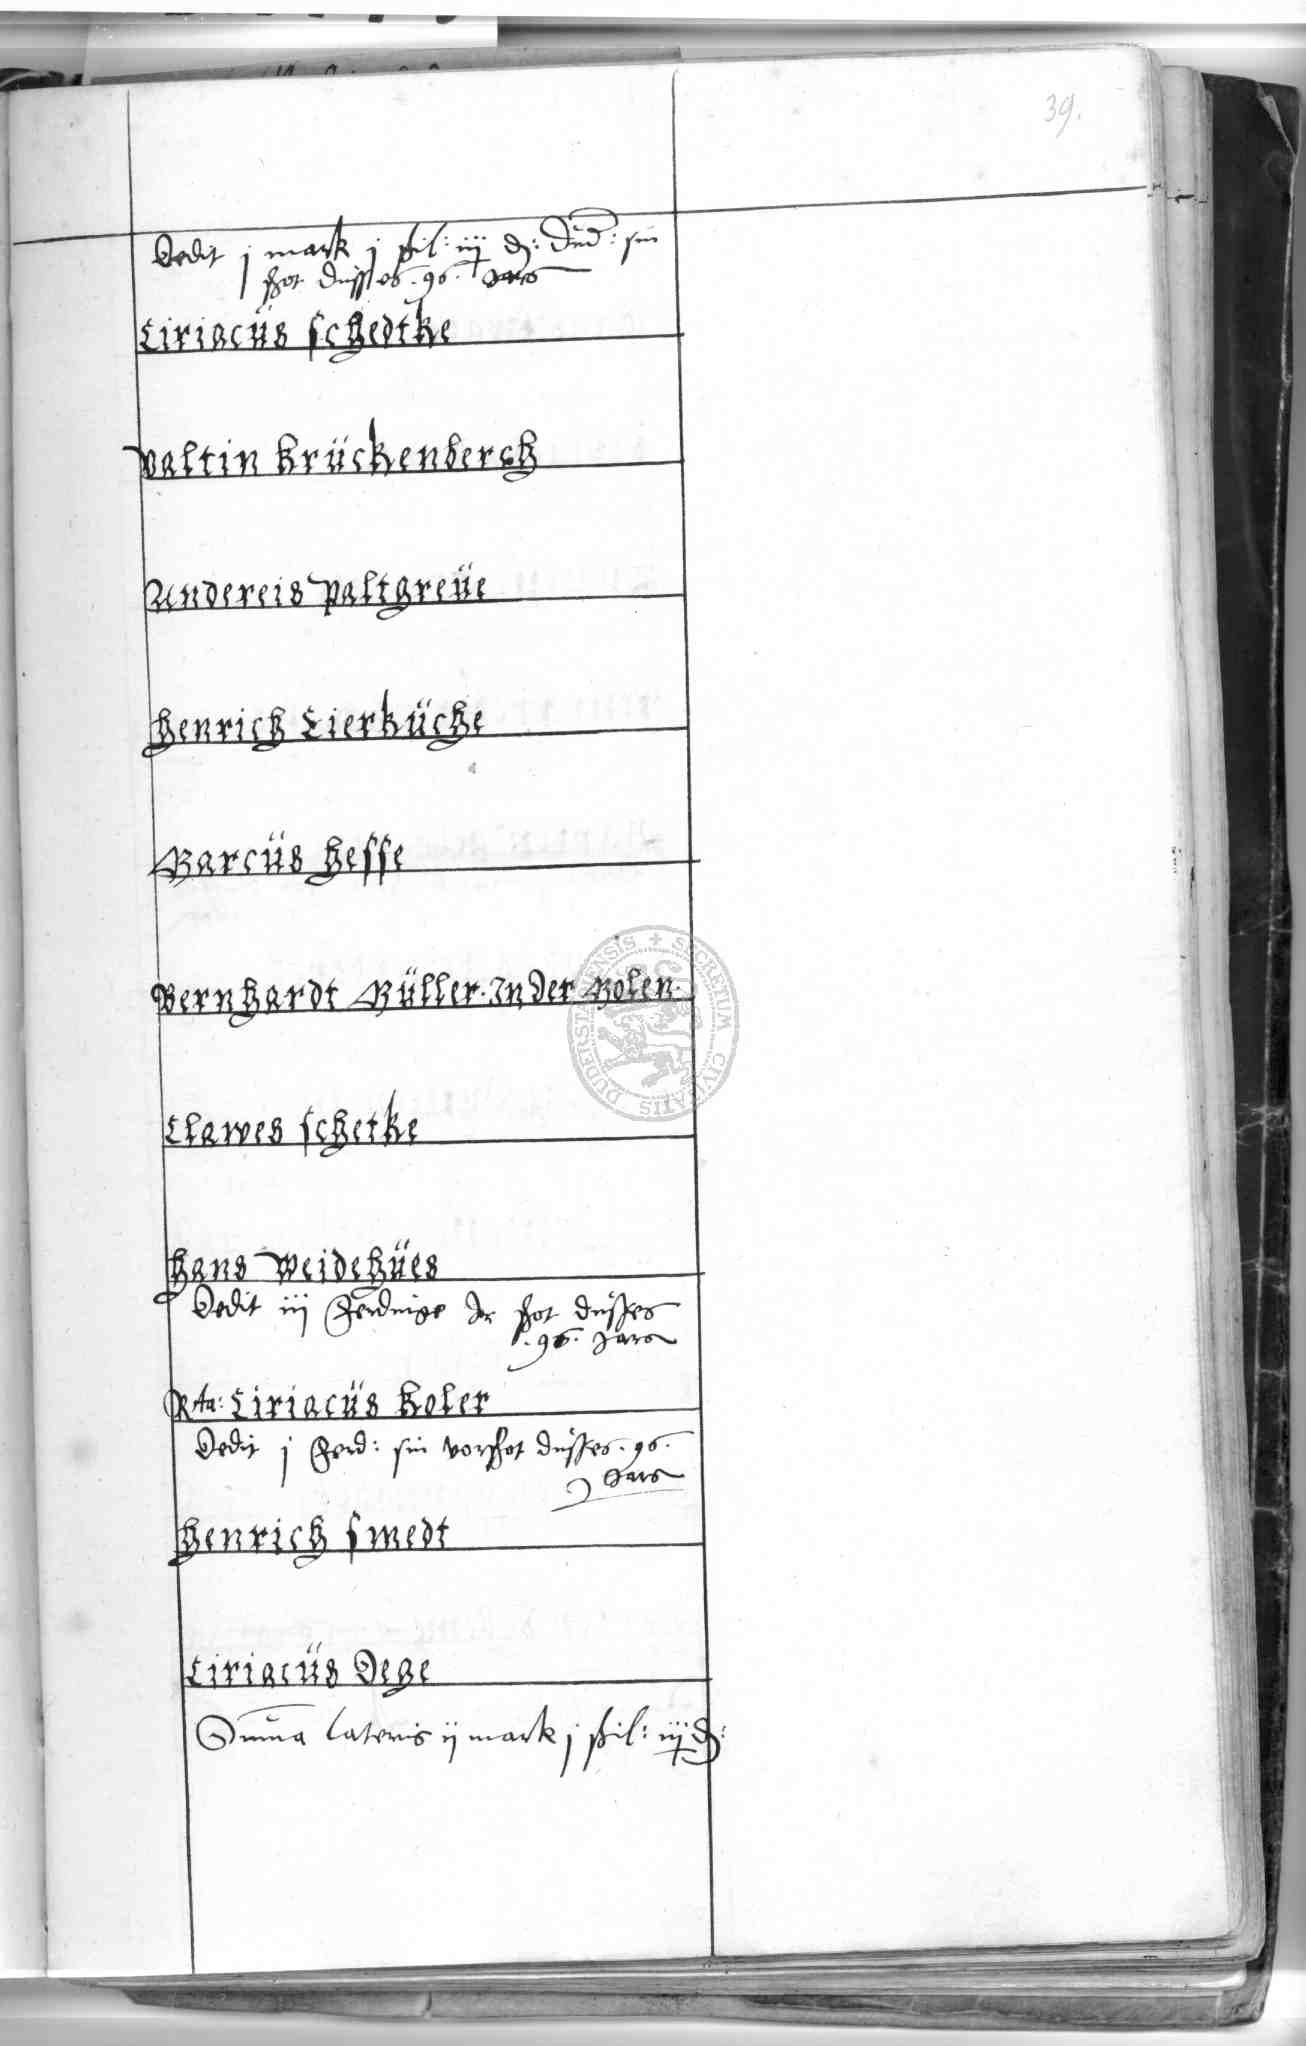 39.
Dedit j mark j ßil: iij d: Dud: sin
schot dusses .96. Jars
Ciriacüs schedtke
Valtin Krückenbergh
Andereis Paltgreüe
Henrich Cierküche
Marcüs Hesse
Bernhardt Müller. In der Molen.
Clawes schetke
Hans Weidehües
Dedit iij Ferdinge Ir schot dusses
.96. Jars
Rta: Ciriacüs Koler
Dedit j Ferd: sin vorschot dusses .96.
Jars
Henrich Smedt
Ciriacüs Dege
Summa Lateris ij mark j ßil: iij d:
SECRETUM CIVITATIS DUDERSTADENSIS